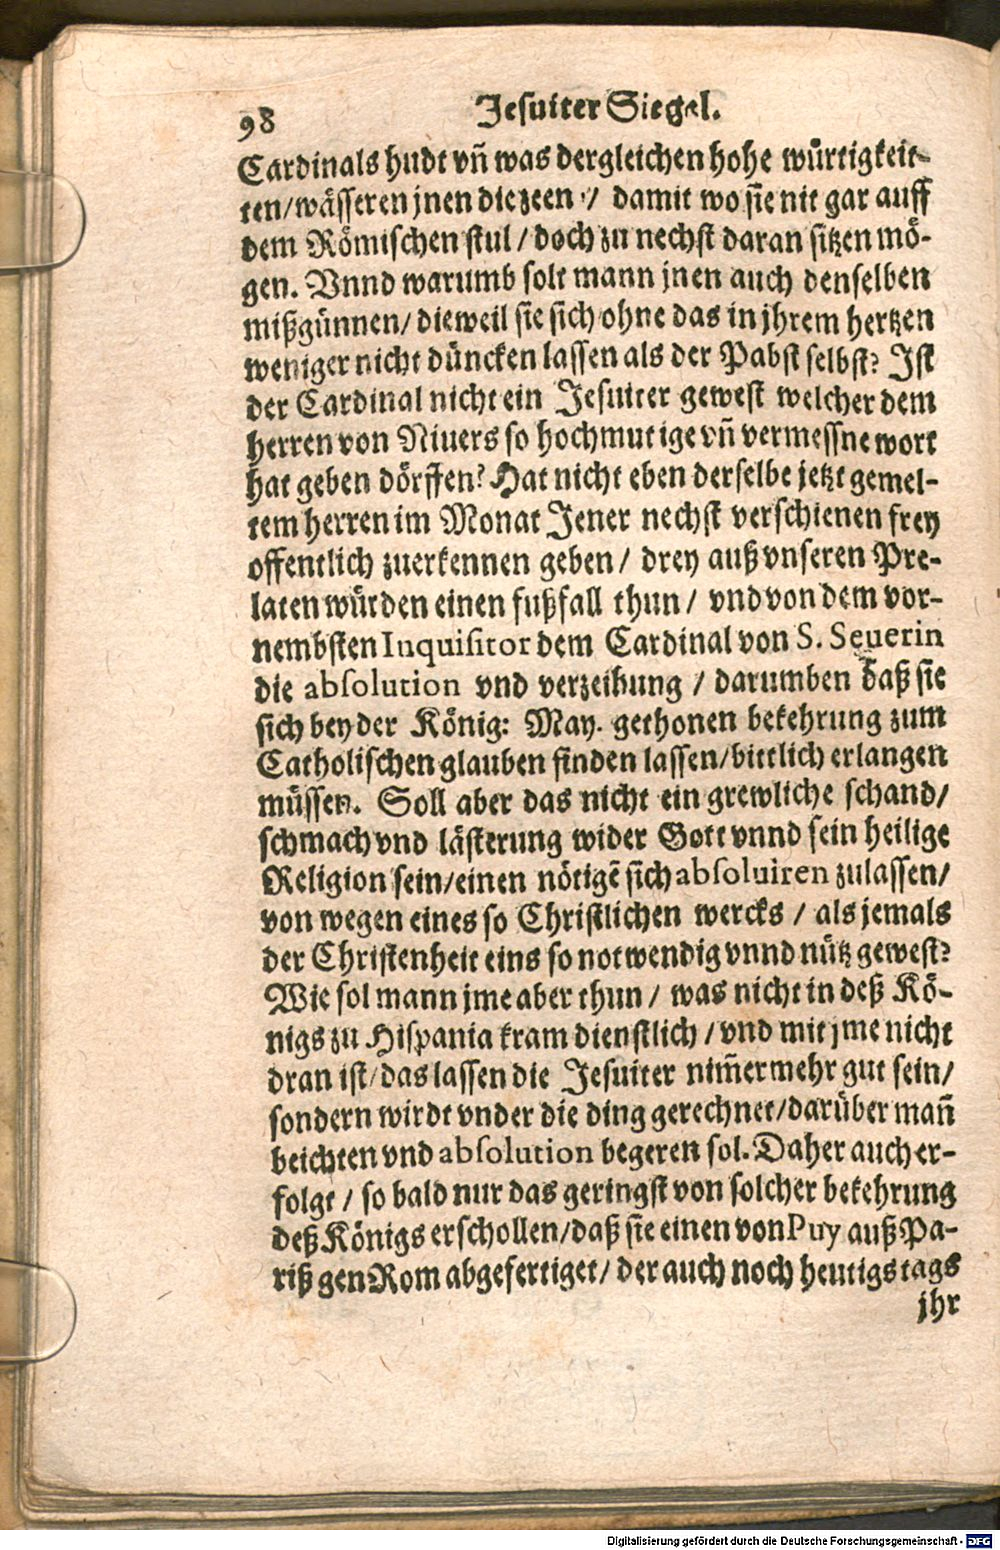 98
Jesuiter Siegel.
Cardinals hudt vñ was dergleichen hohe würtigkeit-
ten/wässeren jnen die zeen / damit wo sie nit gar auff
dem Römischen stul / doch zu nechst daran sitzen mö-
gen. Vnnd warumb solt mann jnen auch denselben
mißgünnen/ dieweil sie sich ohne das in jhrem hertzen
weniger nicht düncken lassen als der Pabst selbst? Ist
der Cardinal nicht ein Jesuiter gewest welcher dem
herren von Nivers so hochmutige vñ vermessne wort
hat geben dörffen? Hat nicht eben derselbe jetzt gemel-
tem herren im Monat Jener nechst verschienen frey
offentlich zuerkennen geben / drey auß vnseren Pre-
laten würden einen fußfall thun / vnd von dem vor-
nembsten Inquisitor dem Cardinal von S. Seuerin
die absolution vnd verzeihung / darumben daß sie
sich bey der König: May. gethonen bekehrung zum
Catholischen glauben finden lassen/bittlich erlangen
müssen. Soll aber das nicht ein grewliche schand/
schmach vnd lästerung wider Gott vnnd sein heilige
Religion sein/einen nötigē sich absoluiren zulassen/
von wegen eines so Christlichen wercks / als jemals
der Christenheit eins so notwendig vnnd nütz gewest?
Wie sol mann jme aber thun / was nicht in deß Kö-
nigs zu Hispania kram dienstlich / vnd mit jme nicht
dran ist/das lassen die Jesuiter nim̄ermehr gut sein/
sondern wirdt vnder die ding gerechnet/darüber mañ
beichten vnd absolution begeren sol. Daher auch er-
folgt / so bald nur das geringst von solcher bekehrung
deß Königs erschollen/daß sie einen von Puy auß Pa-
riß gen Rom abgefertiget/ der auch noch heutigs tags
jhr
Digitalisierung gefördert durch die Deutsche Forschungsgemeinschaft - DFG